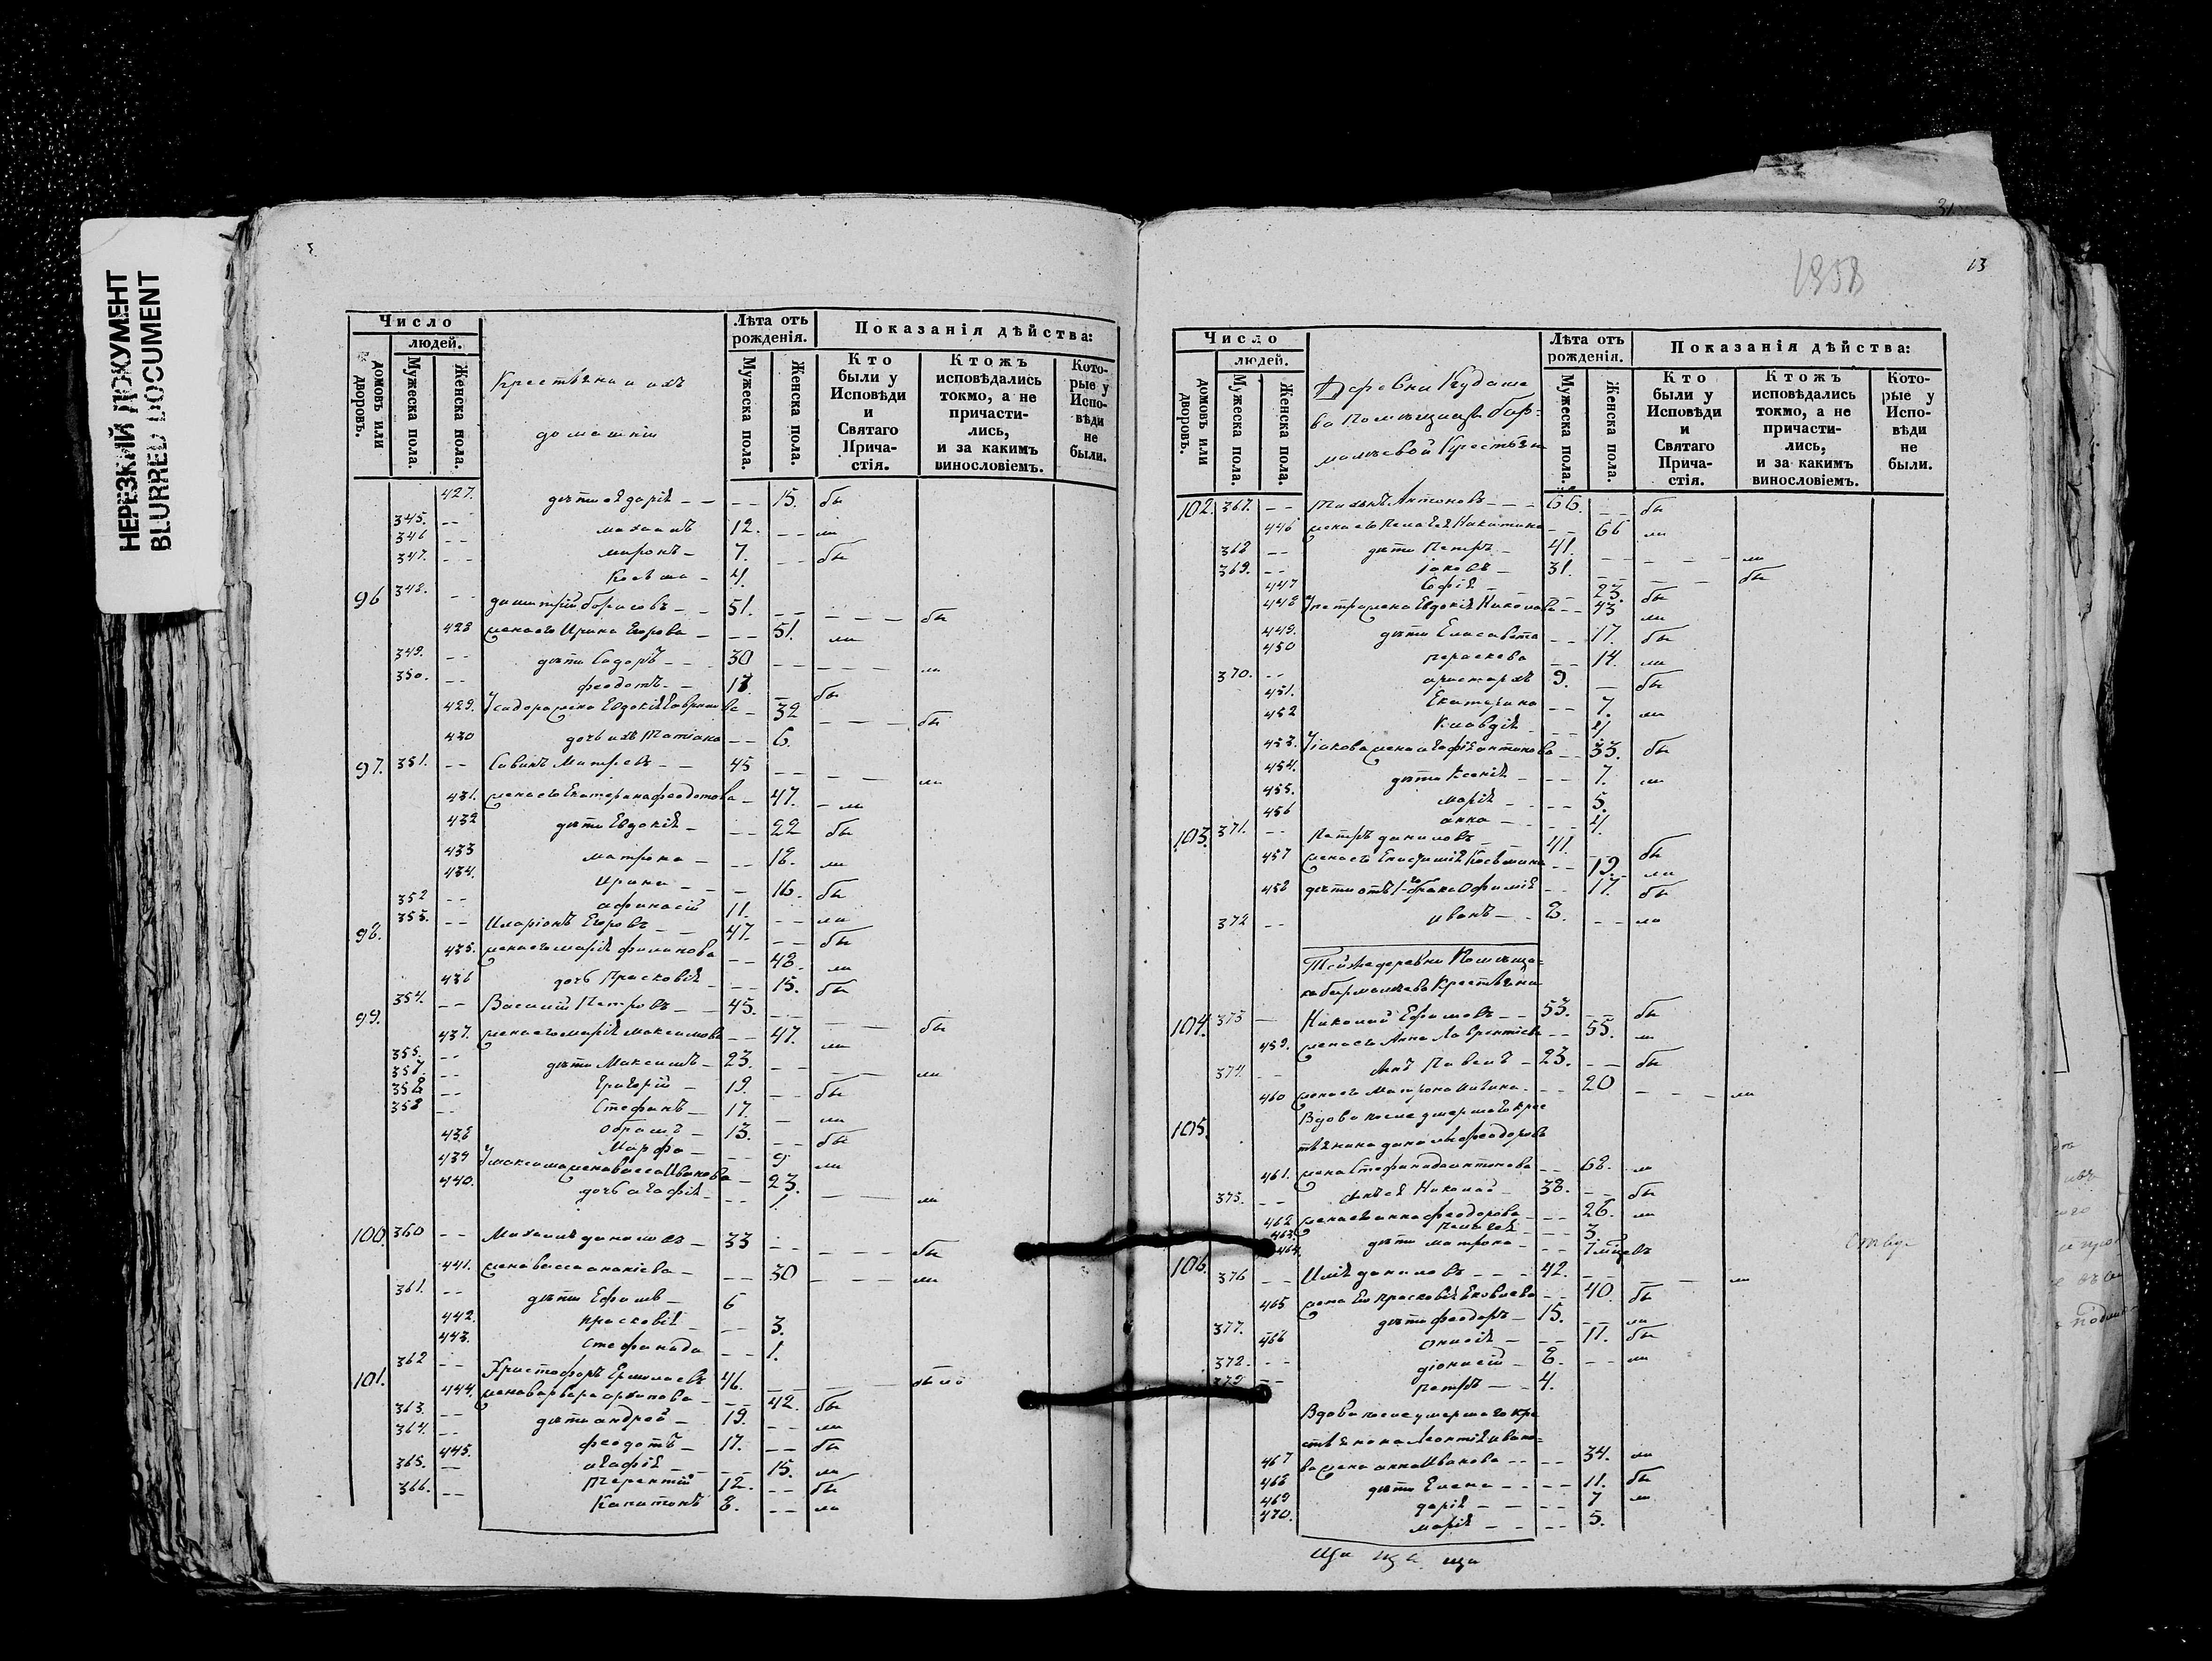 НЕРЕЗКИЙ ДОКУМЕНТ
BLURRED DOCUMENT
Число
людей.
домовъ или дворовъ.
Мужеска пола.
Женска пола.
Крестьяни и ихъ
домашніи
Лѣта отъ рожденія.
Мужеска пола.
Женска пола.
Показанія дѣйства:
Кто были у Исповѣди и Святаго Прича-стія.
Ктожъ исповѣдались токмо, а не причасти-лись, и за какимъ винословіемъ.
Кото-рые у Испо-вѣди не были.
427. дѣти ея дарія -- -- 15. бы
345. -- михаилъ 12. -- ли
346 -- миронъ - 7. -- бы
347. -- Косьма - 4.
96 348. -- димитрій борисовъ -- 51. -- бы
428 жена его Ирина Егорова - -- 51. ли
349. -- дѣти Сидоръ -- 30 -- ли
350. -- феодотъ - 18. -- бы
429. У сидора жена Евдокія Гаврилова -- 32 -- бы
430 дочь ихъ Татіана -- 6.
97. 351. -- Савинъ -- 45 -- ли
431. жена его Екатерина феодотова - 47. - ли
432 дѣти Евдокія - -- 22 бы
433 матрона - -- 18. ли
434. Ирина -- 16. бы
352 -- афанасій 11. -- ли
98. 353. -- Иларіонъ Егоровъ -- 47. -- бы
435. жена его марія филипова -- 48. ли
436 дочь Прасковія -- 15. бы
99. 354. -- Василій Петровъ -- 45. -- бы
437. жена его марія максимова -- 47. ли
355. -- дѣти Максимъ - 23. -- ли
357. -- Григорій - 19. -- бы
358 -- Стефанъ - 17. - ли
358 -- 13. -- бы
438 Марфа -- 9 ли
439 У максима жена васса Иванова - 23.
440. дочь агафія -- 1. -- ли
100. 360 -- Михаилъ даниловъ - 33 -- бы
441. жена васса ананіева - -- 30 -- ли
361. -- дѣти Ефимъ - 6
442. прасковія - -- 3.
443. стефанида -- 1.
101. 362 -- Христофоръ Ермолаевъ 46. --
444. жена варвара архипова - -- 42. бы
363. -- дѣти андрей - 19. -- ли
364. -- феодотъ - 17. -- бы
445. агафія - -- 15. ли
365. -- терентій 12. -- бы
366. -- Капитонъ 8. -- ли
31
13
1858
Число
людей.
домовъ или дворовъ.
Мужеска пола.
Женска пола.
Деревни Кудаше
ва Помѣщицы
Крестьяни
Лѣта отъ рожденія.
Мужеска пола.
Женска пола.
Показанія дѣйства:
Кто были у Исповѣди и Святаго Прича-стія.
Ктожъ исповѣдались токмо, а не причасти-лись, и за какимъ винословіемъ.
Кото-рые у Испо-вѣди не были.
102. 367. -- Антоновъ -- 66. -- бы
446 жена его Пелагея Никитина -- 66 ли
368 -- дѣти Петръ - 41. -- ли
369. -- Іаковъ - 31. -- бы
447 Софія - -- 23. бы
448 У петра жена Евдокія Николаева -- 43 ли
449. дѣти Елисавета -- 17. бы
450 параскева -- 14. ли
370. -- аристархъ 9. -- бы
451. Екатерина -- 7. ли
452 Клавдія -- 4
453. У іакова жена агафія антипова -- 33. бы
454. дѣти Ксенія - -- 7. ли
455. марія - -- 5.
456 анна - -- 4.
103. 371. -- Петръ даниловъ - 41. -- бы
457 жена его Косьмина -- 19. ли
458 дѣти отъ 1-го брака Офимія -- 17. бы
372 -- иванъ - 8. -- ли
Той же деревни Помѣщи-
ка Крестьяни
104. 373 -- Николай Ефимовъ -- 53. -- бы
459. жена его Анна Лаврентіева -- 55. ли
374. -- Павелъ - 23. -- бы
460 жена его Матрона -- 20 -- ли
105. Вдова после умершаго крес
тьянина данилы феодоровъ
461. жена Стефанида антонова -- 68. ли
375. -- сынъ ея Николай - 38. -- бы
462 жена его анна феодорова -- 26. ли
463. пелагея -- 3.
464. дѣти матрона - -- 7 мцевъ
106. 376 -- Илія даниловъ -- 42. -- ли
465 жена Его прасковія Яковлева -- 40. бы
377. дѣти феодоръ - 15. -- ли
466 -- 11. бы
378. -- діонисій - 8. -- ли
379 -- петръ -- 4.
Вдова после умершаго кре
стьянина Леонтія ивано-
467 ва жена анна Иванова -- 34. ли
468 дѣти Елена -- 11. бы
469 дарія -- 7 ли
470. марія -- 5.